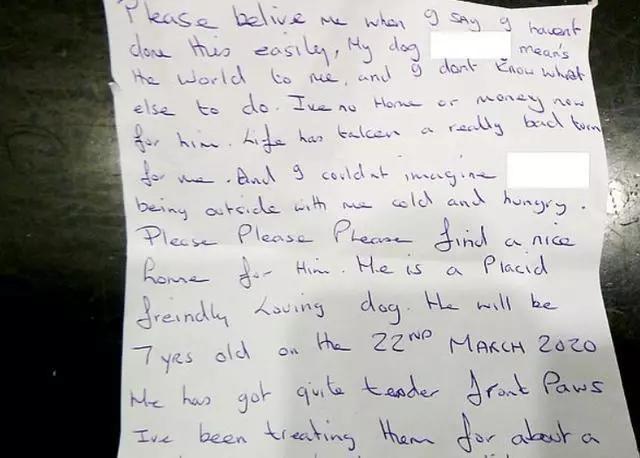 Please belive me when I say I havent
done this easily, My dog mean's
the world to me, and I dont know what
else to do. I've no Home or money now
for him. Life has taken a really bad turn
for me. And I couldnt imagine
being outside with me cold and hungry.
Please Please Please find a nice
home for Him. He is a Placid
freindly Loving dog. He will be
7 yrs old on the 22ND MARCH 2020
He has got quite tender front Paws
I've been treating them for about a